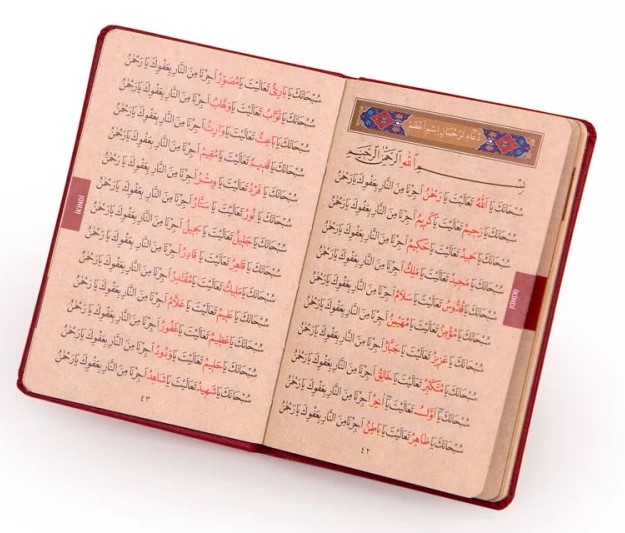 دُعَاءِ تَرْجُمَانِ اِسْمِ اَعْظَمْ
بِسْمِ اللهِ الرَّحْمٰنِ الرَّحِيمِ
سُبْحَانَكَ يَا اَللهُ تَعَالَيْتَ يَا رَحْمٰنُ اَجِرْنَا مِنَ النَّارِ بِعَفْوِكَ يَا رَحْمٰنُ
سُبْحَانَكَ يَا رَحِيمُ تَعَالَيْتَ يَا كَرِيمُ اَجِرْنَا مِنَ النَّارِ بِعَفْوِكَ يَا رَحْمٰنُ
سُبْحَانَكَ يَا حَمِيدُ تَعَالَيْتَ يَا حَكِيمُ اَجِرْنَا مِنَ النَّارِ بِعَفْوِكَ يَا رَحْمٰنُ
سُبْحَانَكَ يَا مَجِيدُ تَعَالَيْتَ يَا مَلِكُ اَجِرْنَا مِنَ النَّارِ بِعَفْوِكَ يَا رَحْمٰنُ
سُبْحَانَكَ يَا قُدُّوسُ تَعَالَيْتَ يَا سَلَامُ اَجِرْنَا مِنَ النَّارِ بِعَفْوِكَ يَا رَحْمٰنُ
سُبْحَانَكَ يَا مُؤْمِنُ تَعَالَيْتَ يَا مُهَيْمِنُ اَجِرْنَا مِنَ النَّارِ بِعَفْوِكَ يَا رَحْمٰنُ
سُبْحَانَكَ يَا عَزِيزُ تَعَالَيْتَ يَا جَبَّارُ اَجِرْنَا مِنَ النَّارِ بِعَفْوِكَ يَا رَحْمٰنُ
سُبْحَانَكَ يَا مُتَكَبِّرُ تَعَالَيْتَ يَا خَالِقُ اَجِرْنَا مِنَ النَّارِ بِعَفْوِكَ يَا رَحْمٰنُ
سُبْحَانَكَ يَا اَوَّلُ تَعَالَيْتَ يَا اٰخِرُ اَجِرْنَا مِنَ النَّارِ بِعَفْوِكَ يَا رَحْمٰنُ
سُبْحَانَكَ يَا ظَاهِرُ تَعَالَيْتَ يَا بَاطِنُ اَجِرْنَا مِنَ النَّارِ بِعَفْوِكَ يَا رَحْمٰنُ
٤٢
İKİNDİ
سُبْحَانَكَ يَا بَارِئُ تَعَالَيْتَ يَا مُصَوِّرُ اَجِرْنَا مِنَ النَّارِ بِعَفْوِكَ يَا رَحْمٰنُ
سُبْحَانَكَ يَا تَوَّابُ تَعَالَيْتَ يَا وَهَّابُ اَجِرْنَا مِنَ النَّارِ بِعَفْوِكَ يَا رَحْمٰنُ
سُبْحَانَكَ يَا بَاعِثُ تَعَالَيْتَ يَا وَارِثُ اَجِرْنَا مِنَ النَّارِ بِعَفْوِكَ يَا رَحْمٰنُ
سُبْحَانَكَ يَا قَدِيمُ تَعَالَيْتَ يَا مُقِيمُ اَجِرْنَا مِنَ النَّارِ بِعَفْوِكَ يَا رَحْمٰنُ
سُبْحَانَكَ يَا فَرْدُ تَعَالَيْتَ يَا وِتْرُ اَجِرْنَا مِنَ النَّارِ بِعَفْوِكَ يَا رَحْمٰنُ
سُبْحَانَكَ يَا نُورُ تَعَالَيْتَ يَا سَتَّارُ اَجِرْنَا مِنَ النَّارِ بِعَفْوِكَ يَا رَحْمٰنُ
سُبْحَانَكَ يَا جَلِيلُ تَعَالَيْتَ يَا جَمِيلُ اَجِرْنَا مِنَ النَّارِ بِعَفْوِكَ يَا رَحْمٰنُ
سُبْحَانَكَ يَا قَاهِرُ تَعَالَيْتَ يَا قَادِرُ اَجِرْنَا مِنَ النَّارِ بِعَفْوِكَ يَا رَحْمٰنُ
سُبْحَانَكَ يَا مَلِيكُ تَعَالَيْتَ يَا مُقْتَدِرُ اَجِرْنَا مِنَ النَّارِ بِعَفْوِكَ يَا رَحْمٰنُ
سُبْحَانَكَ يَا عَلِيمُ تَعَالَيْتَ يَا عَلَّامُ اَجِرْنَا مِنَ النَّارِ بِعَفْوِكَ يَا رَحْمٰنُ
سُبْحَانَكَ يَا عَظِيمُ تَعَالَيْتَ يَا غَفُورُ اَجِرْنَا مِنَ النَّارِ بِعَفْوِكَ يَا رَحْمٰنُ
سُبْحَانَكَ يَا حَلِيمُ تَعَالَيْتَ يَا وَدُودُ اَجِرْنَا مِنَ النَّارِ بِعَفْوِكَ يَا رَحْمٰنُ
سُبْحَانَكَ يَا شَهِيدُ تَعَالَيْتَ يَا شَاهِدُ اَجِرْنَا مِنَ النَّارِ بِعَفْوِكَ يَا رَحْمٰنُ
٤٣
İKİNDİ